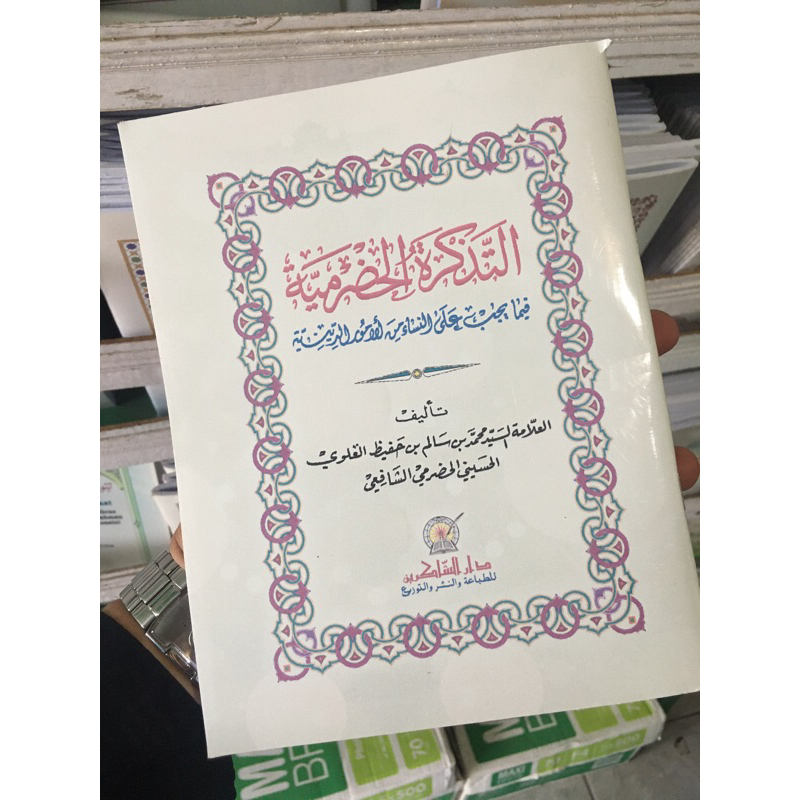 التَّذكِرَةُ الحَضْرَميَّة
فيما يجبْ عَلَى النسَاءِ مِنَ الأمُورِ الدِّينيّة
تأليف
العلّامة السَّيّد محمّد بن سَالم بن حَفيظ العَلوي
الحسَيني الحَضرمي الشَّافِعيْ
دار الشاكرين
للطباعة والنشر والتوزيع
MAXI
BR
70
500
MAXI
BR